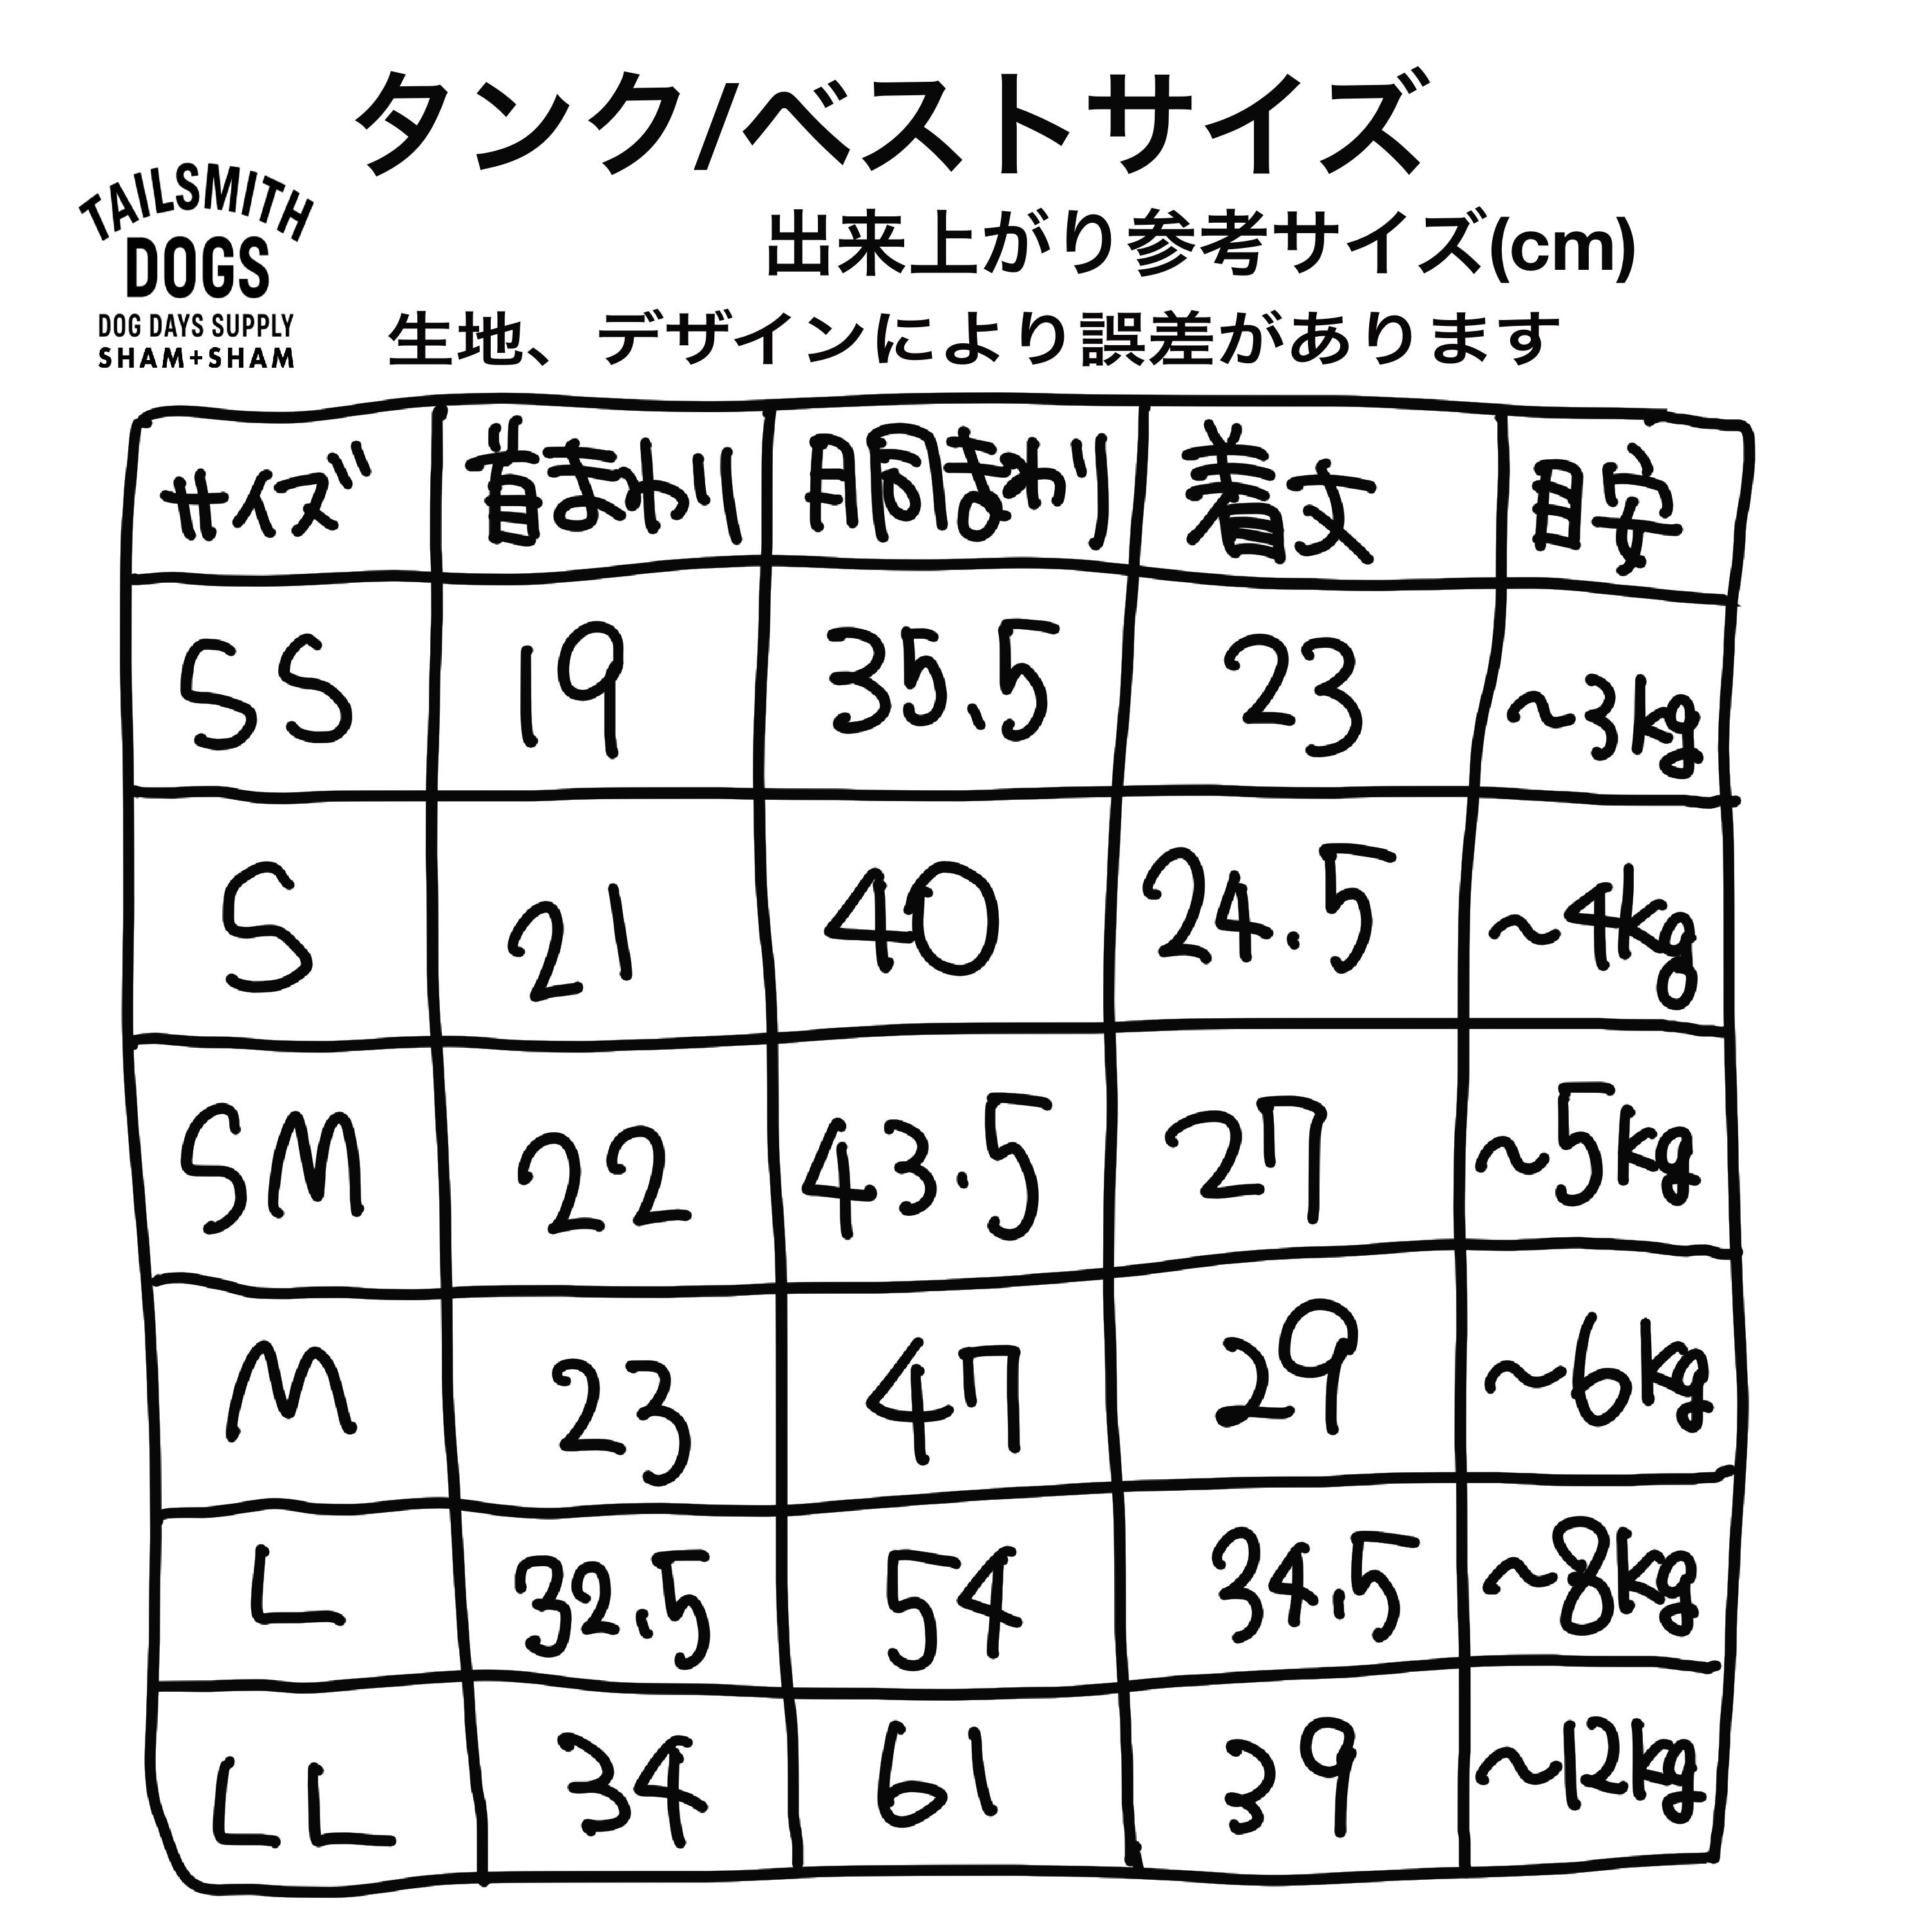 タンク/ベストサイズ
TAILSMITH
DOGS
DOG DAYS SUPPLY
SHAM+SHAM
出来上がり参考サイズ(cm)
生地、デザインにより誤差があります
サイズ 首まわり 胴まわり 着丈 目安
SS 19 35.5 23 ~3kg
S 21 40 24.5 ~4kg
SM 22 43.5 27 ~5kg
M 23 47 29 ~6kg
L 32.5 54 34.5 ~8kg
LL 34 61 39 ~12kg